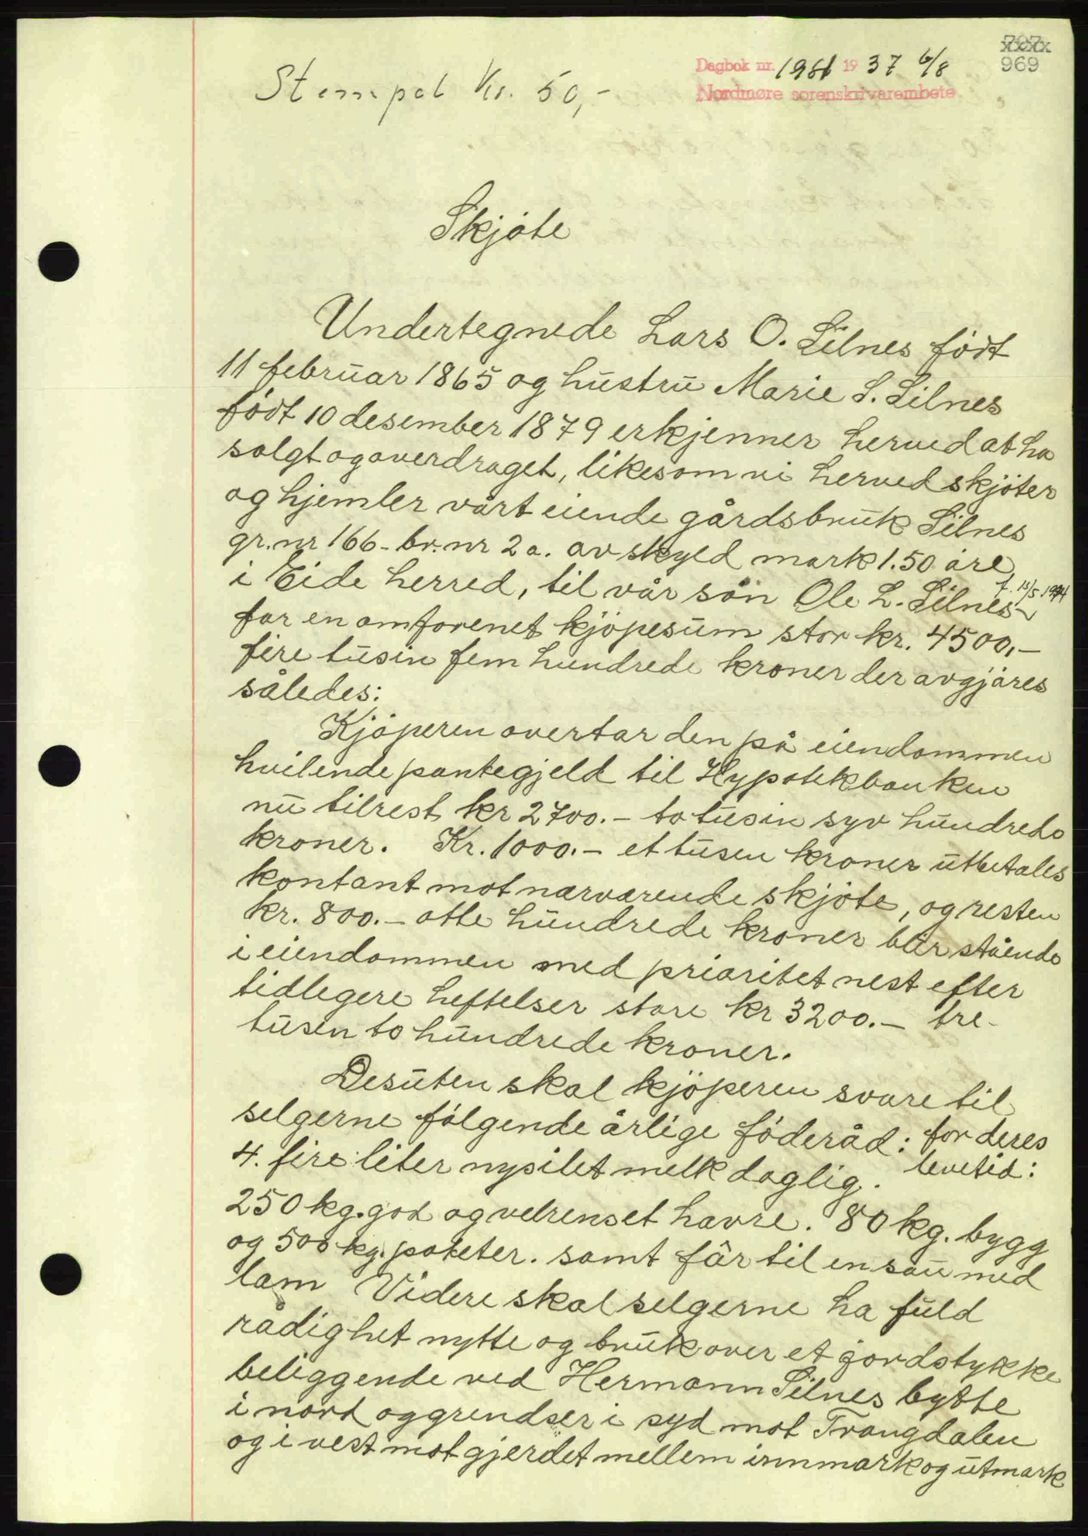 Stempel Kr. 50,-
Dagbok nr. 1981 1937 6/8
Nordmøre sorenskrivarembete
969
Skjöte
Undertegnede Lars O. Silnes födt
11 februar 1865 og hustru Marie S. Silnes
födt 10 desember 1879 erkjenner herved at ha
solgt og overdraget, likesom vi herved skjöter
og hjemler vårt eiende gårdsbruk Silnes
gr.nr 166 - br.nr 2 a. av skyld mark 1.50 öre
i Eide herred, til vår sön Ole L. Silnes
for en omforenet kjöpesum stor kr. 4500,-
fire tusin fem hundrede kroner der avgjöres
således:
Kjöperen overtar den på eiendommen
hvilende pantegjeld til Hypotekbanken
nu tilrest kr 2700.- to tusin syv hundrede
kroner. Kr. 1000.- et tusen kroner utbetales
kontant mot nærværende skjöte, og resten
kr. 800.- otte hundrede kroner blir stående
i eiendommen med prioritet nest efter
tidlegere heftelser store kr 3200.- tre-
tusen to hundrede kroner.
Desuten skal kjöperen svare til
selgerne fölgende årlige föderåd: for deres
levetid:
4. fire liter nysilet melk daglig.
250 kg. god og velrenset havre. 80 kg. bygg
og 500 kg. poteter. samt fôr til en sau med
lam Videre skal selgerne ha fuld
rådighet nytte og bruk over et jordstykke
beliggende ved Hermann Silnes bytte
i nord og grendser i syd mot Trangdalen
og i vest mot gjerdet mellem innmark og utmark